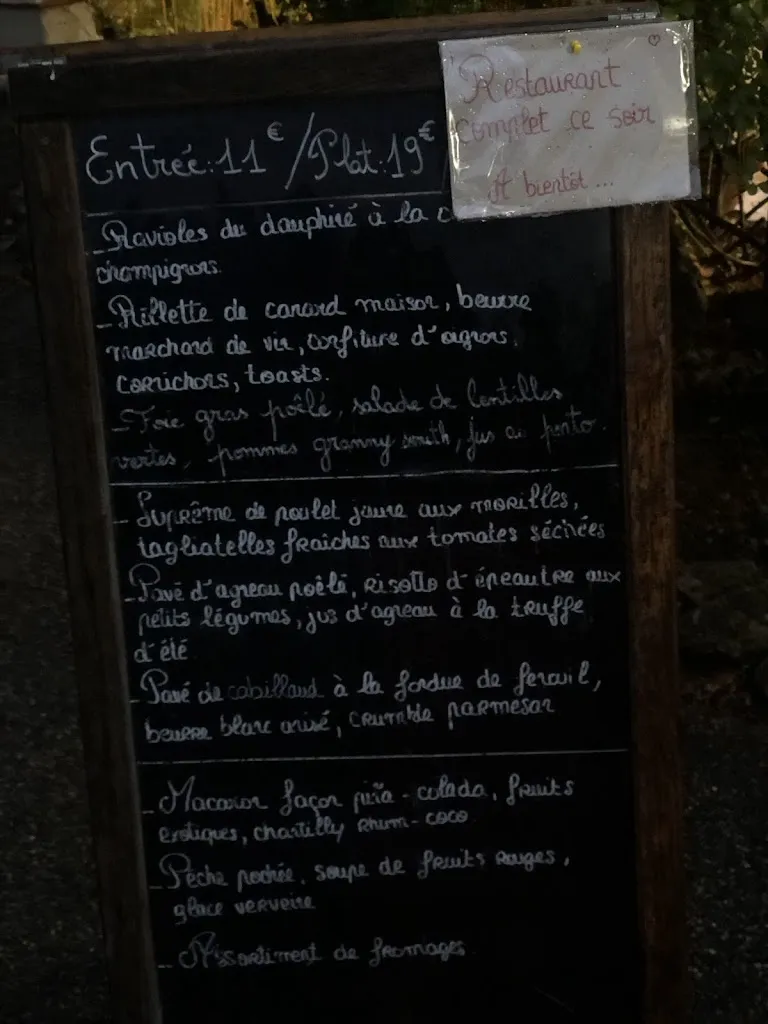 Restaurant
complet ce soir
A bientôt ...
Entrée: 11€ / Plat: 19€
- Ravioles du dauphiné à la c
champignons.
- Rillette de canard maison, beurre
marchand de vin, confiture d'oignons,
cornichons, toasts.
- Foie gras poêlé, salade de lentilles
vertes, pommes granny smith, jus au porto.
- Suprême de poulet jaune aux morilles,
tagliatelles fraîches aux tomates séchées
- Pavé d'agneau poêlé, risotto d'épeautre aux
petits légumes, jus d'agneau à la truffe
d'été
- Pavé de cabillaud à la fondue de fenouil,
beurre blanc anisé, crumble parmesan
- Macaron façon piña-colada, fruits
exotiques, chantilly Rhum-coco
- Pêche pochée, soupe de fruits rouges,
glace verveine
- Assortiment de fromages